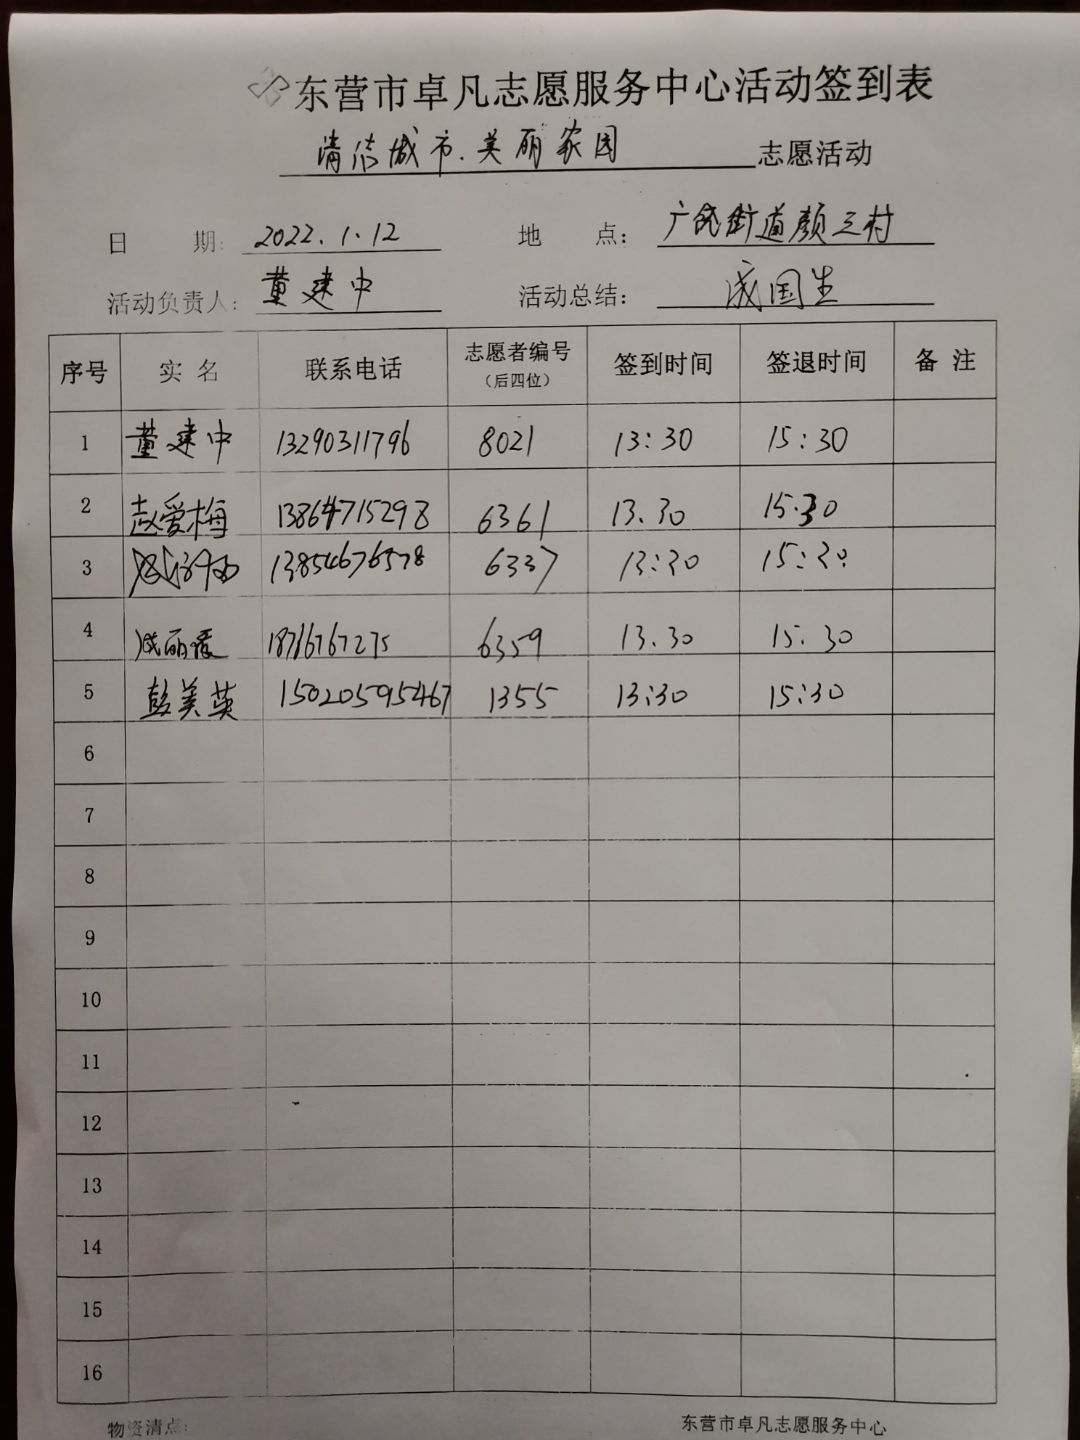 东营市卓凡志愿服务中心活动签到表
清洁城市.美丽家园 志愿活动
日 期: 2022.1.12 地 点: 广饶街道颜三村
活动负责人: 董建中 活动总结: 成国生
序号 实 名 联系电话 志愿者编号 签到时间 签退时间 备 注
(后四位)
1 董建中 13290311796 8021 13:30 15:30
2 赵爱梅 13864715298 6361 13.30 15.30
3 13854676578 6337 13:30 15:30
4 成丽媛 18716767275 6359 13.30 15.30
5 彭美英 15020595467 1355 13:30 15:30
6
7
8
9
10
11
12
13
14
15
16
物资清点: 东营市卓凡志愿服务中心